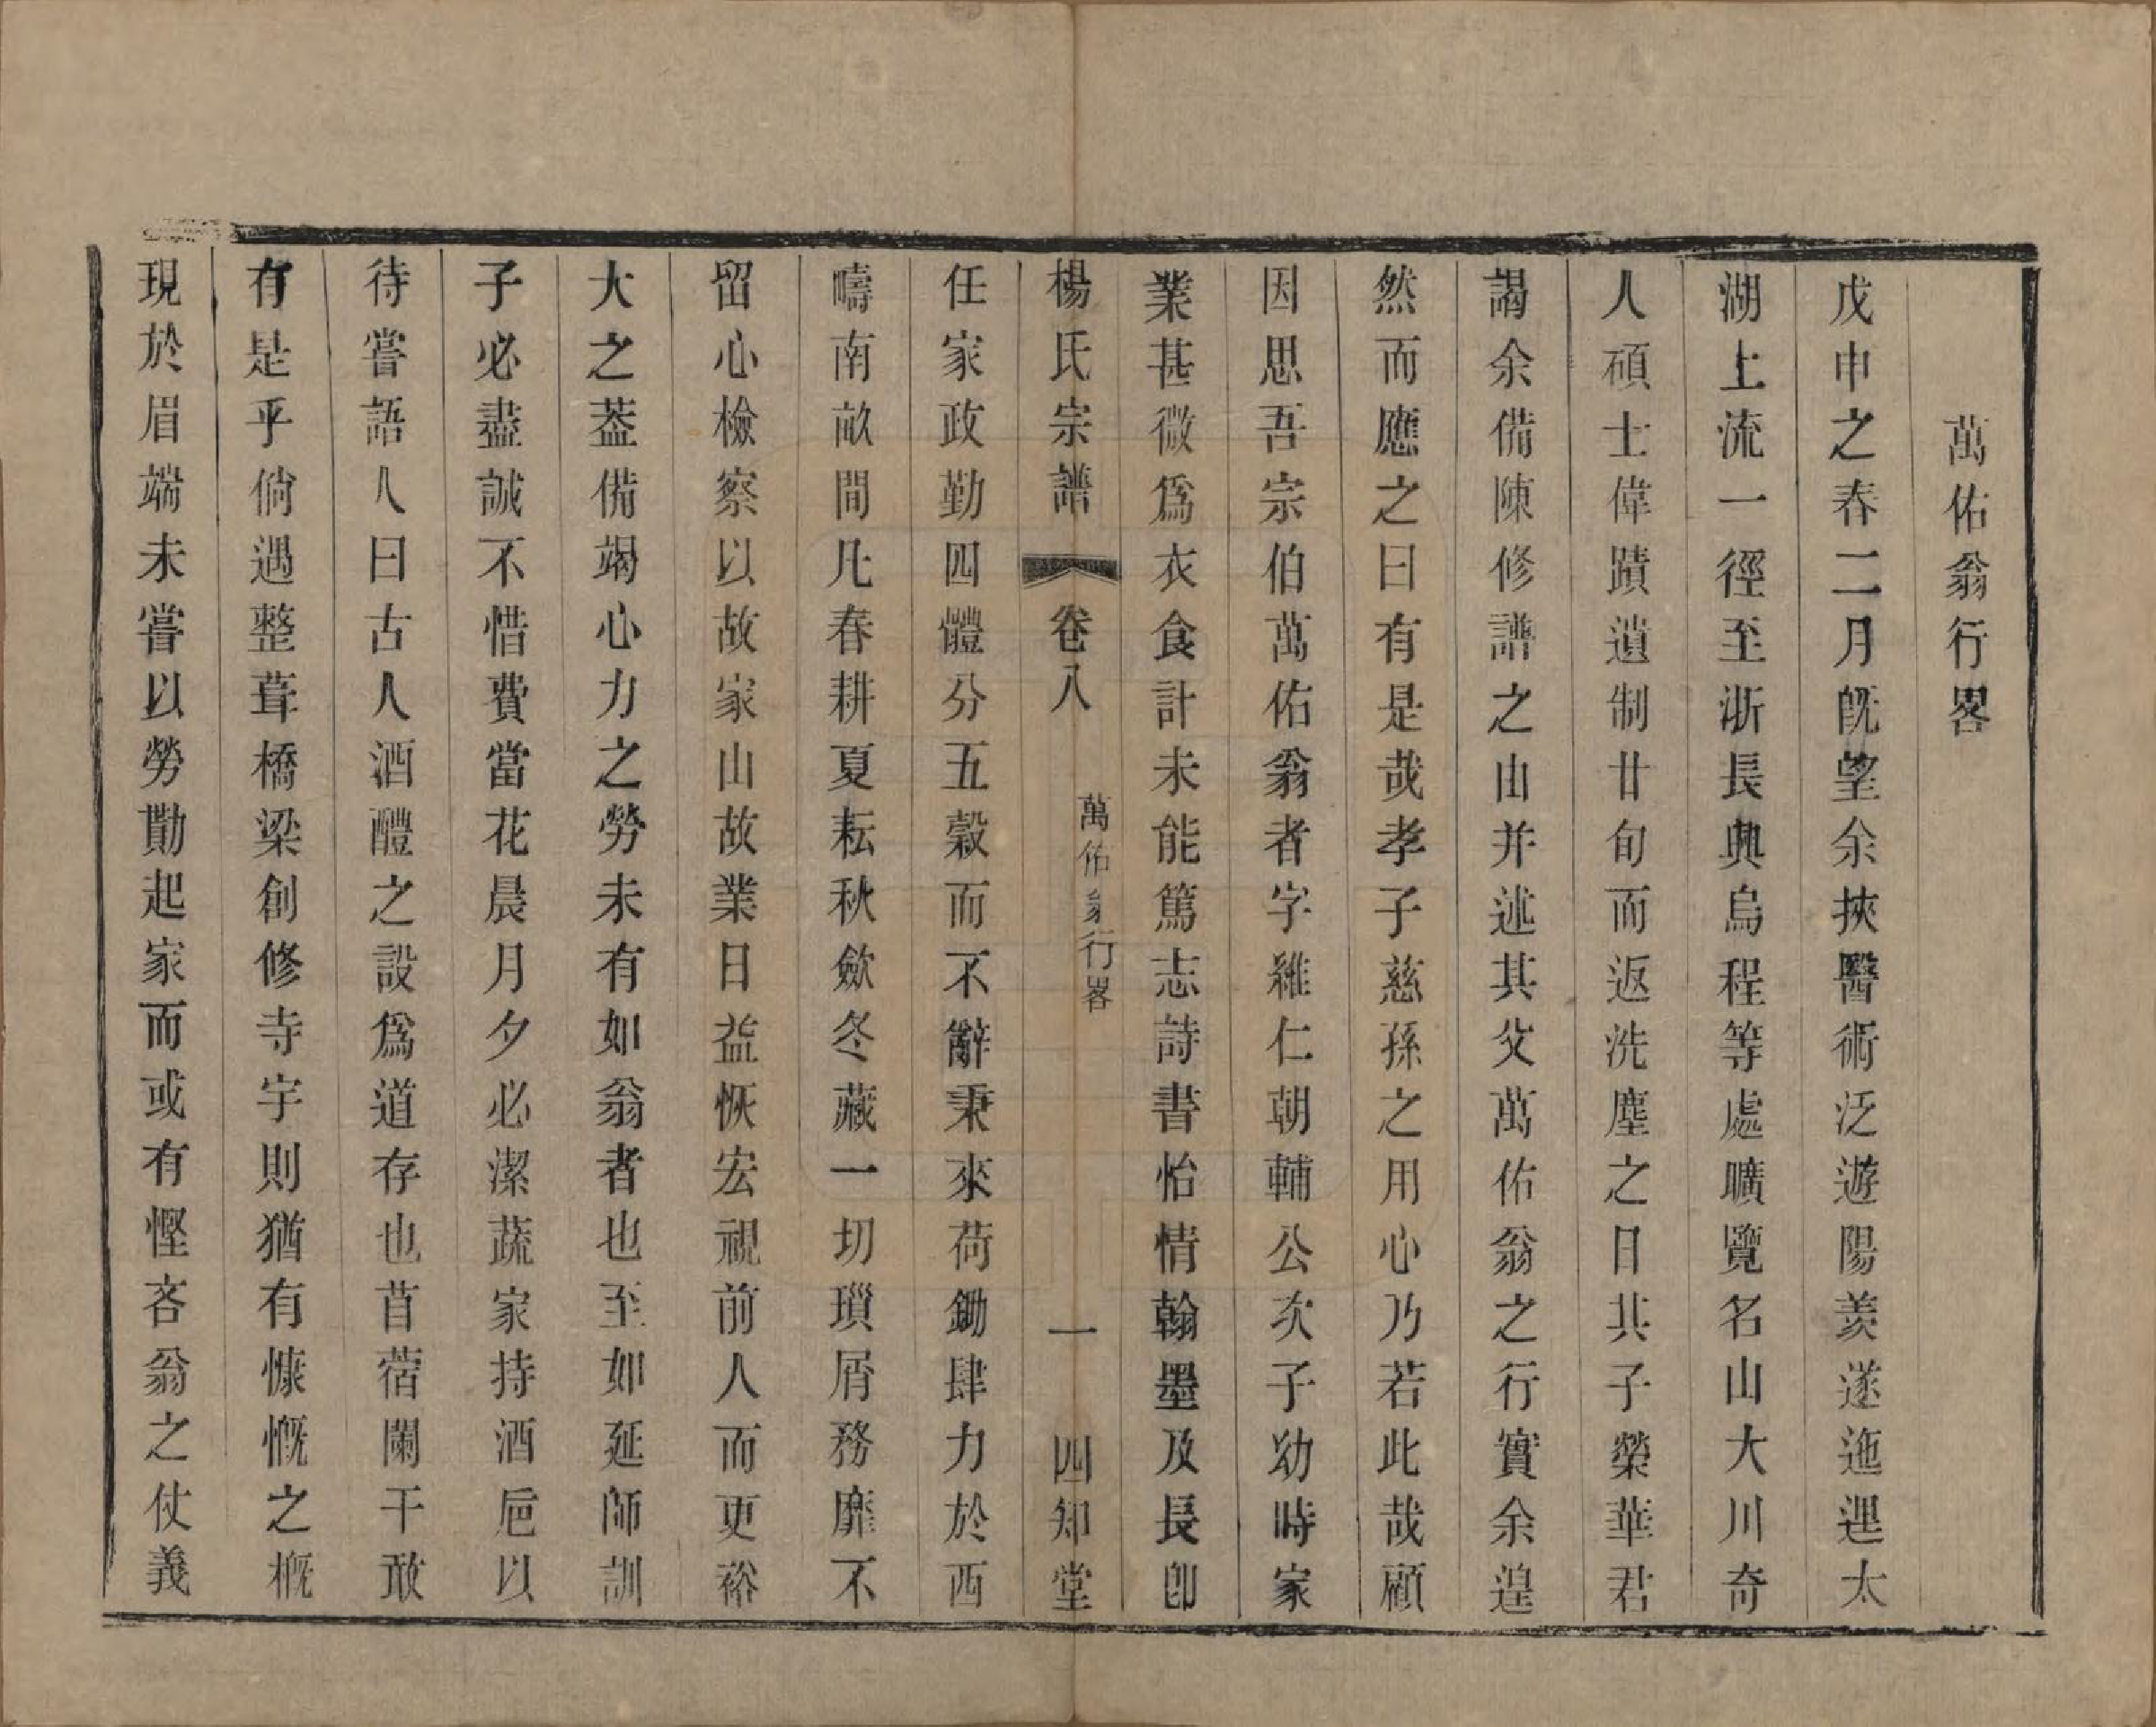 萬佑翁行畧
戊申之春二月旣望余挾醫術泛遊陽羨遂迤邐太
湖上流一徑至浙長興烏程等處曠覽名山大川奇
人碩士偉蹟遺制廿旬而返洗塵之日其子榮華君
謁余備陳修譜之由并述其父萬佑翁之行實余遑
然而應之曰有是哉孝子慈孫之用心乃若此哉顧
因思吾宗伯萬佑翁者字維仁朝輔公次子幼時家
業甚微爲衣食計未能篤志詩書怡情翰墨及長卽
楊氏宗譜 卷八 萬佑翁行畧 一 四知堂
任家政勤四體分五穀而不辭秉來荷鋤肆力於西
疇南畝間凡春耕夏耘秋斂冬藏一切瑣屑務靡不
留心檢察以故家山故業日益恢宏視前人而更裕
大之葢備竭心力之勞未有如翁者也至如延師訓
子必盡誠不惜費當花晨月夕必潔蔬家持酒巵以
待嘗語人曰古人酒醴之設爲道存也苜蓿闌干敢
有是乎倘遇整葺橋梁創修寺宇則猶有慷慨之概
現於眉端未嘗以勞勩起家而或有慳吝翁之仗義